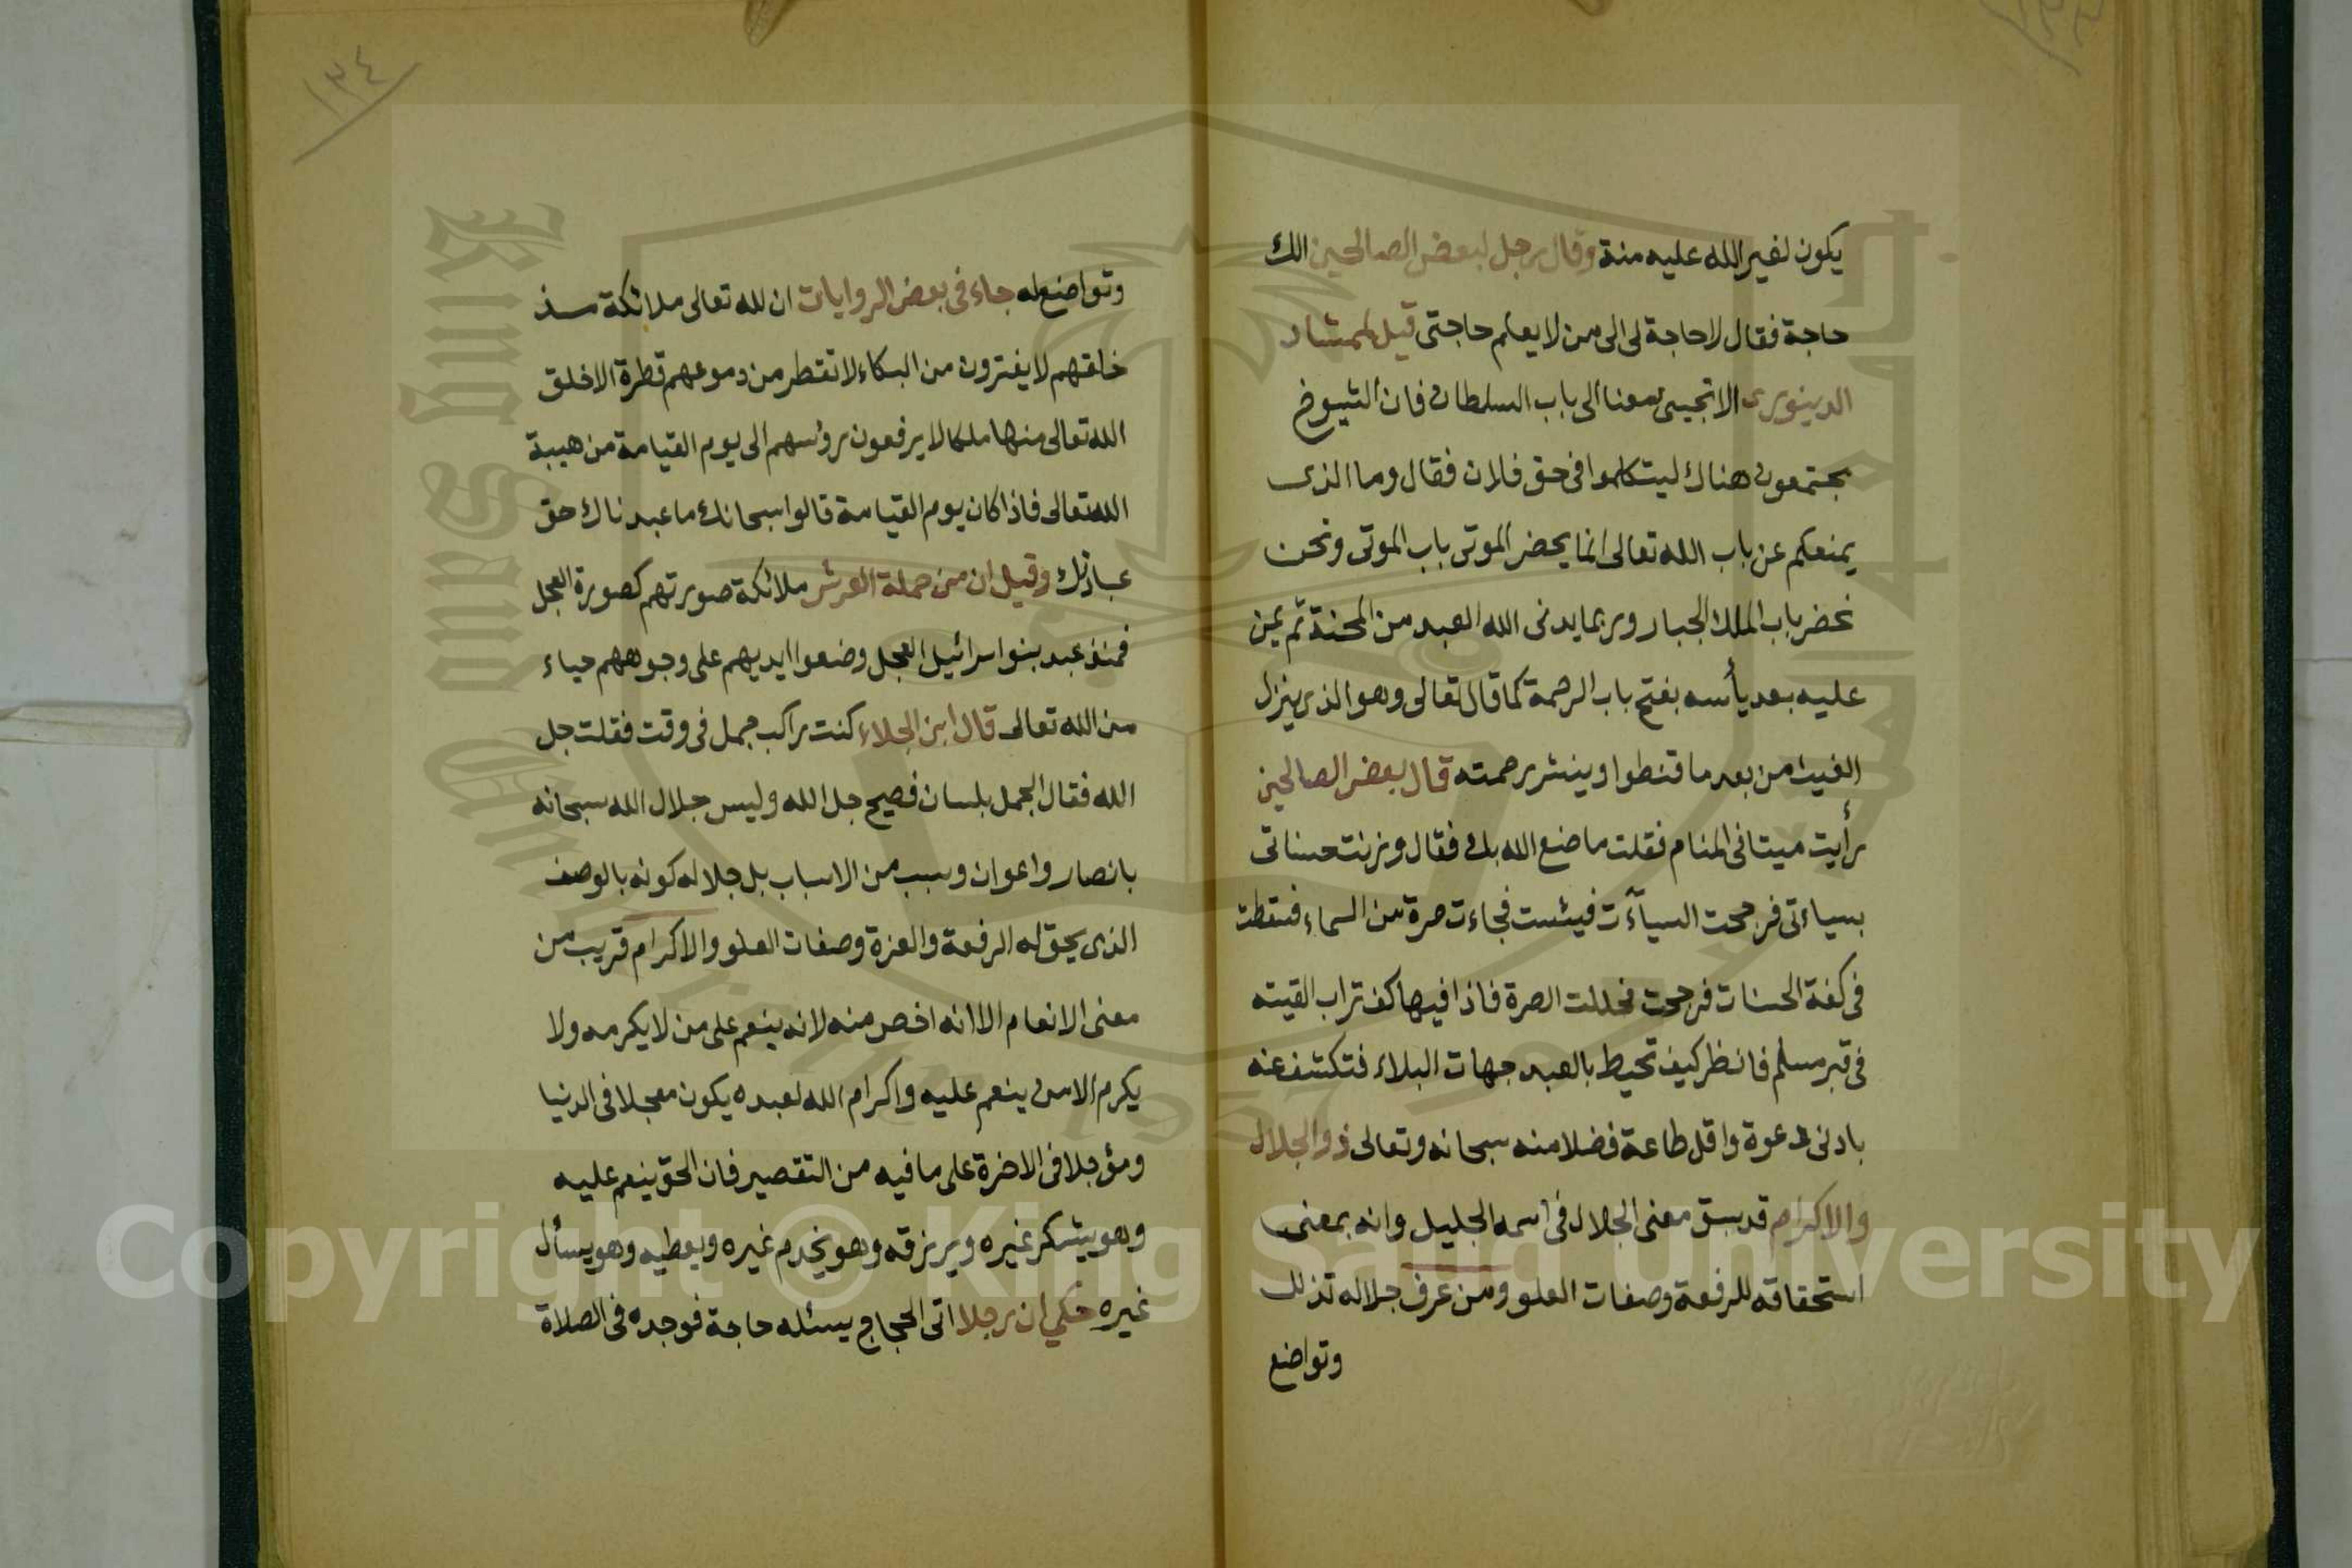 يكون لغير الله عليه منة وقال رجل لبعض الصالحين الك
حاجة فقال لا حاجة لى الى من لا يعلم حاجتى قيل لممشاد
الدينورى الا تجيئ معنا الى باب السلطان فان الشيوخ
مجتمعون هناك ليتكلموا فى حق فلان فقال وما الذى
يمنعكم عن باب الله تعالى انما يحضر الموتى باب الموتى ونحن
نحضر باب الملك الجبار وربما يدنى الله العبد من المحنة ثم يمن
عليه بعد يأسه بفتح باب الرحمة كما قال تعالى وهو الذى ينزل
الغيث من بعد ما قنطوا وينشر رحمته قال بعض الصالحين
رأيت ميتا فى المنام فقلت ما صنع الله بك فقال وزنت حسناتى
بسياءتى فرجحت السيآت فيئست فجاءت صرة من السماء فسقطت
فى كفة الحسنات فرجحت فحللت الصرة فاذا فيها كف تراب القيته
فى قبر مسلم فانظر كيف تحيط بالعبد جهات البلاء فتكشف عنه
بادنى دعوة واقل طاعة فضلا منه سبحانه وتعالى ذو الجلال
والاكرام قد سبق معنى الجلال فى اسمه الجليل وانه بمعنى
استحقاقه للرفعة وصفات العلو ومن عرف جلاله تذلل
وتواضع
١٣٤
وتواضع له جاء فى بعض الروايات ان لله تعالى ملائكة منذ
خلقهم لا يفترون من البكاء لا تقطر من دموعهم قطرة الا خلق
الله تعالى منها ملكا لا يرفعون رؤسهم الى يوم القيامة من هيبة
الله تعالى فاذا كان يوم القيامة قالوا سبحانك ما عبدناك حق
عبادتك وقيل ان من حملة العرش ملائكة صورتهم كصورة العجل
فمنذ عبد بنوا اسرائيل العجل وضعوا ايديهم على وجوههم حياء
من الله تعالى قال ابن الجلاء كنت راكب جمل فى وقت فقلت جل
الله فقال الجمل بلسان فصيح جل الله وليس جلال الله سبحانه
بانصار واعوان وسبب من الاسباب بل جلاله كونه بالوصف
الذى يحق له الرفعة والعزة وصفات العلو والاكرام قريب من
معنى الانعام الا انه اخص منه لانه ينعم على من لا يكرمه ولا
يكرم الا من ينعم عليه واكرام الله لعبده يكون معجلا فى الدنيا
ومؤجلا فى الاخرة على ما فيه من التقصير فان الحق ينعم عليه
وهو يشكر غيره ويرزقه وهو يخدم غيره ويعطيه وهو يسأل
غيره حكي ان رجلا اتى الحجاج يسئله حاجة فوجده فى الصلاة
Copyright © King Saud University